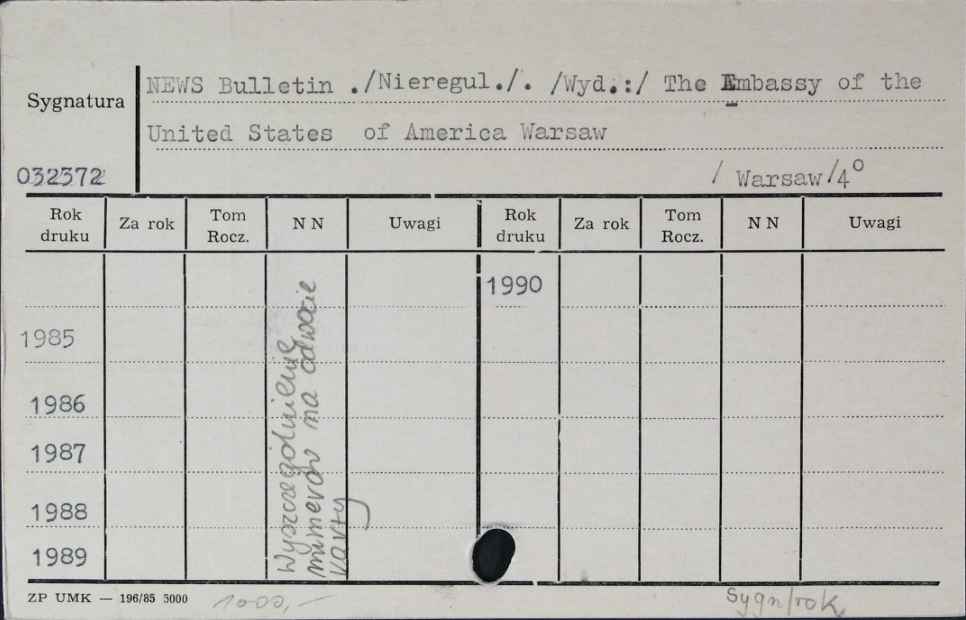 NEWS Bulletin ./Nieregul./. /Wyd.:/ The Embassy of the
Sygnatura
United States of America Warsaw
032372
/ Warsaw/4⁰
Rok druku Za rok Tom Rocz. N N Uwagi Rok druku Za rok Tom Rocz. N N Uwagi
1990
1985
1986
1987
1988
1989
Wyszczególnienie
numerów na odwocie
karty
ZP UMK — 196/85 5000
1000,—
Sygn/rok